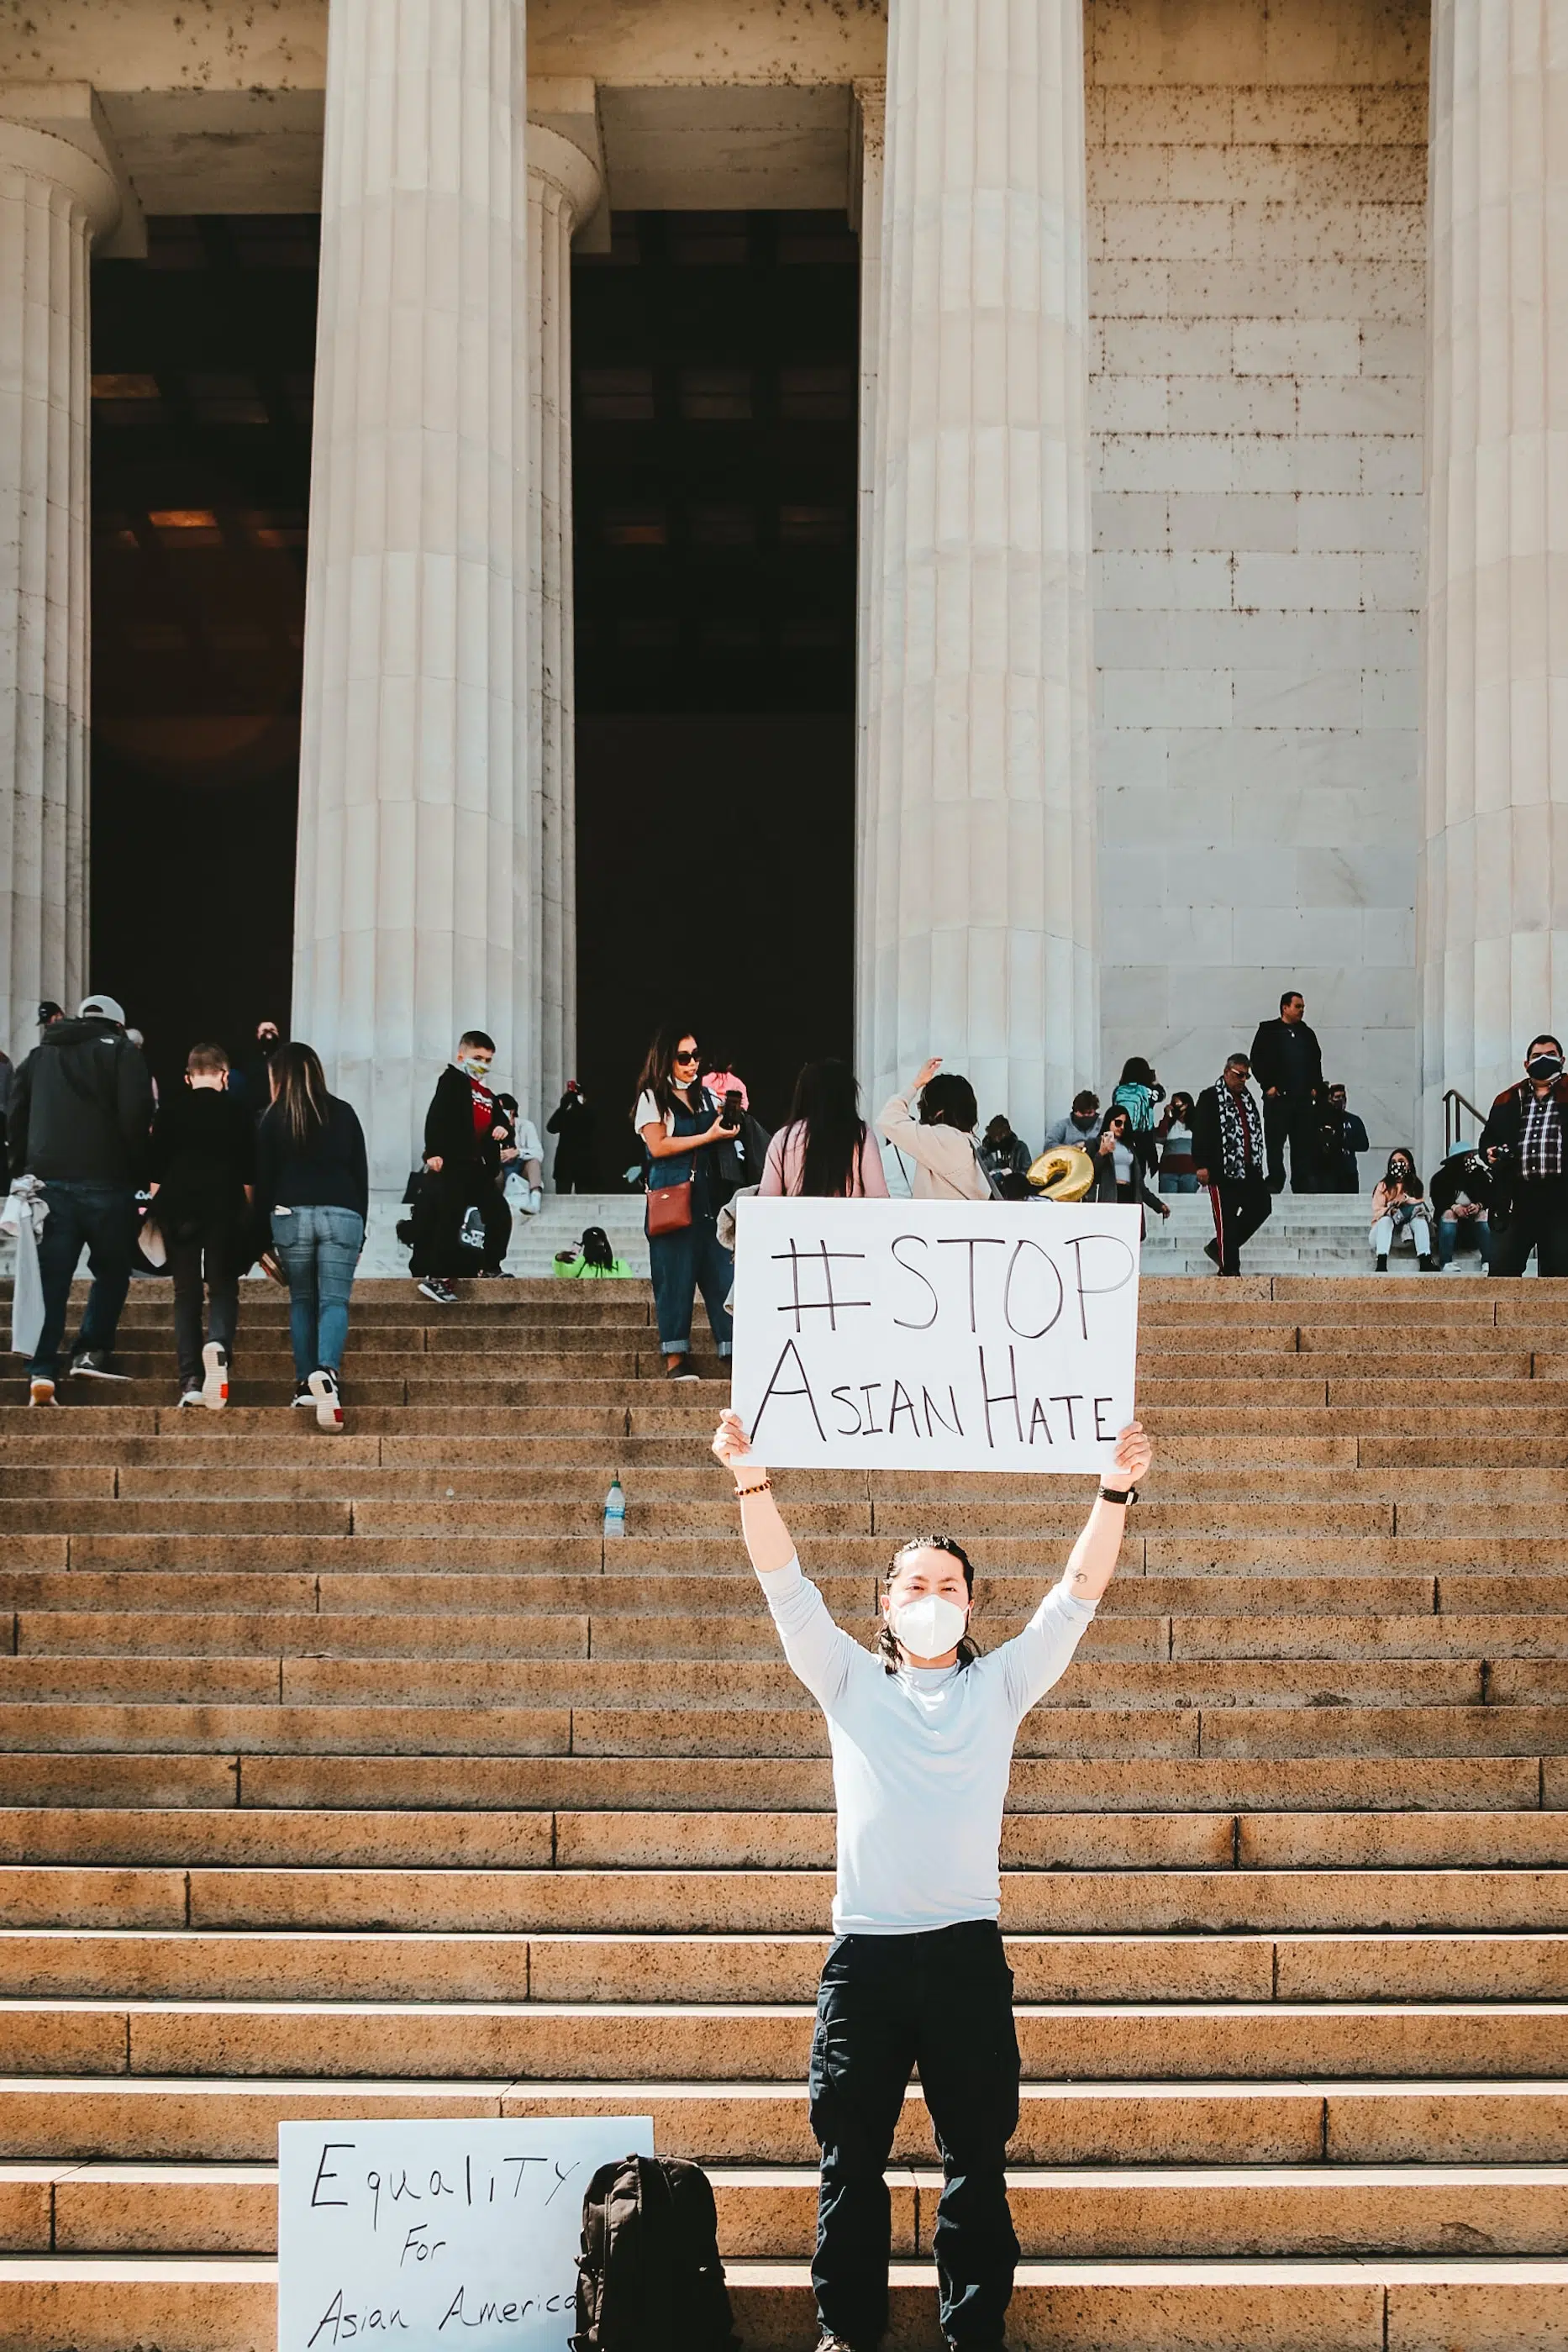 #STOP
ASIAN HATE
2
EqualiTy
For
Asian America